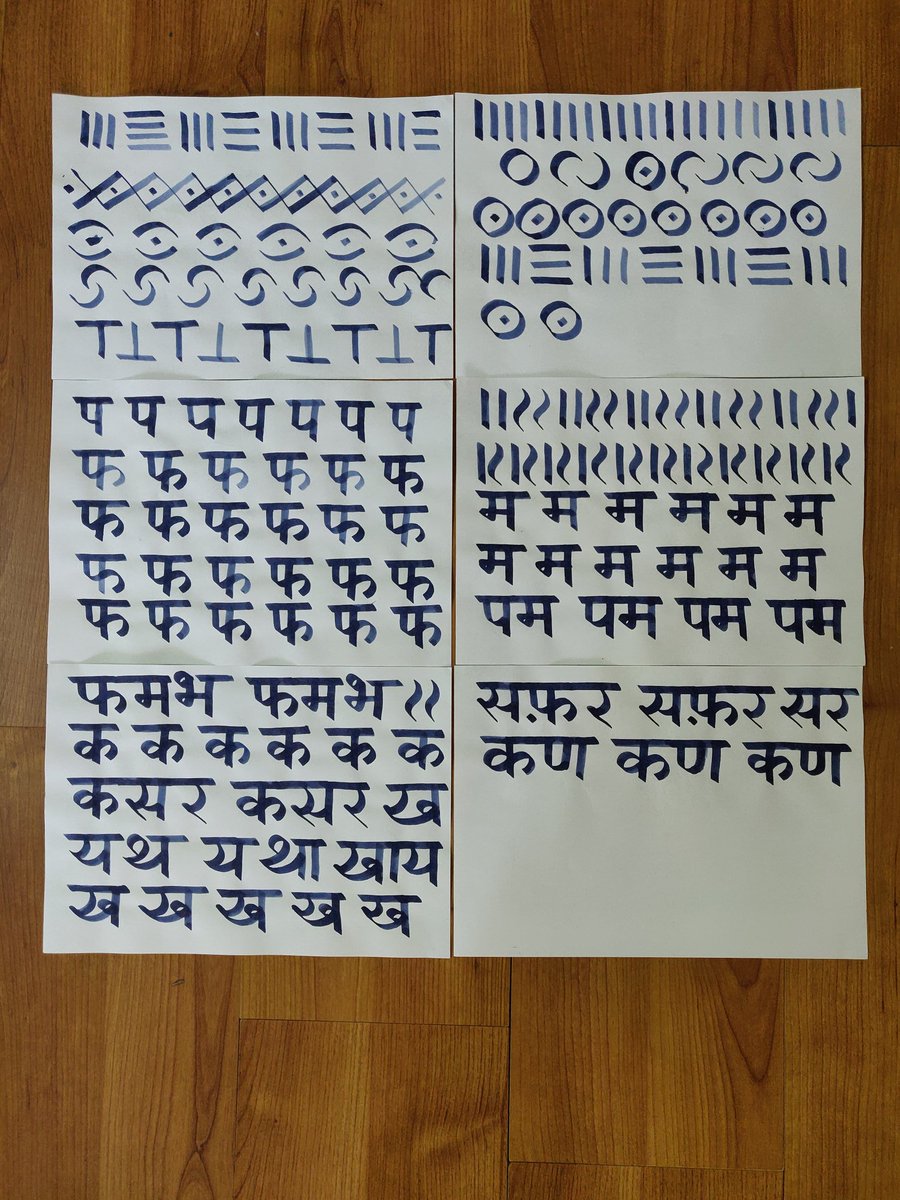 प प प प प प प
फ फ फ फ फ फ
फ फ फ फ फ फ
फ फ फ फ फ फ
फ फ फ फ फ फ
म म म म म म
म म म म म म
पम पम पम पम
फमभ फमभ
क क क क क क
कसर कसर ख
यथ यथा खाय
ख ख ख ख ख
सफ़र सफ़र सर
कण कण कण